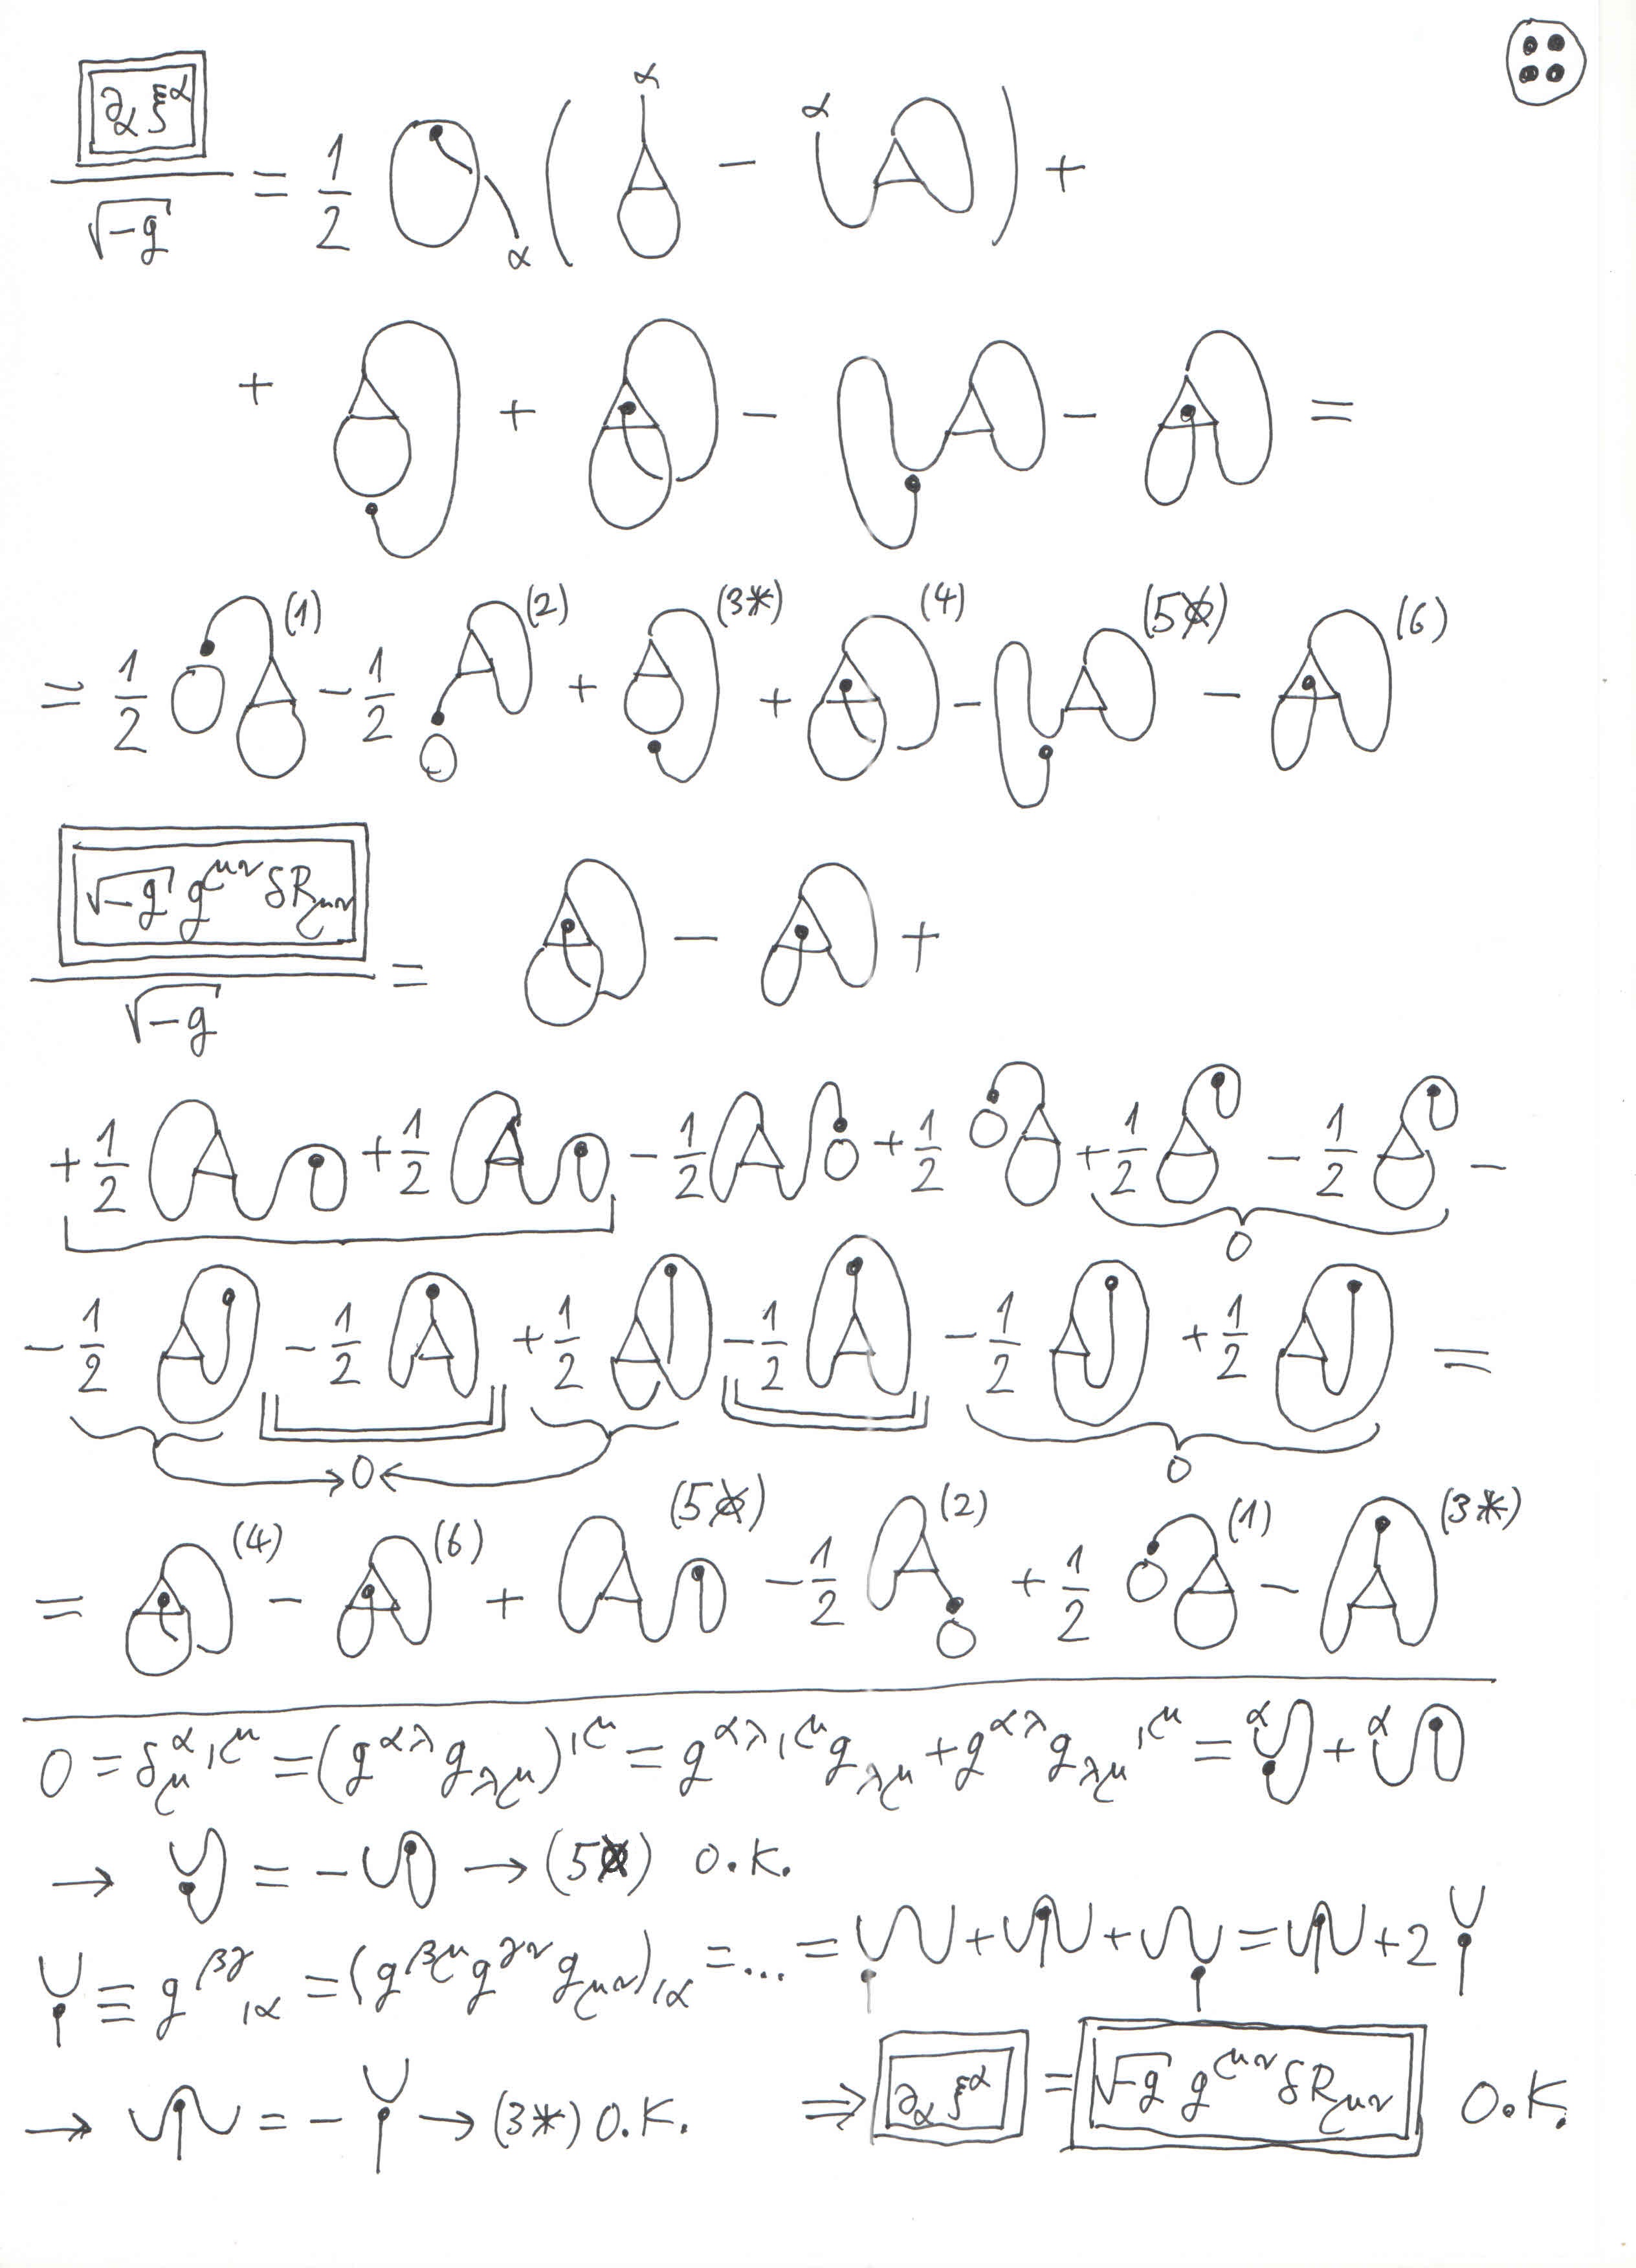 ∂α ξ^α / √-g = 1/2 α ( α - α ) +
+ + - - =
= 1/2 (1) - 1/2 (2) + (3*) + (4) - (5) - (6)
√-g g^μν δR_μν / √-g = - +
+ 1/2 + 1/2 - 1/2 + 1/2 + 1/2 - 1/2 -
0
- 1/2 - 1/2 + 1/2 - 1/2 - 1/2 + 1/2 =
0 0
= (4) - (6) + (5) - 1/2 (2) + 1/2 (1) - (3*)
0 = δ^α_μ ,^μ = (g^αλ g_λμ),^μ = g^αλ,^μ g_λμ + g^αλ g_λμ,^μ = α + α
→ = - → (5) O.K.
≡ g^βγ_,α = (g^βμ g^γν g_μν)_,α = ... = + + = + 2
→ = - → (3*) O.K. ⇒ ∂α ξ^α = √-g g^μν δR_μν O.K.